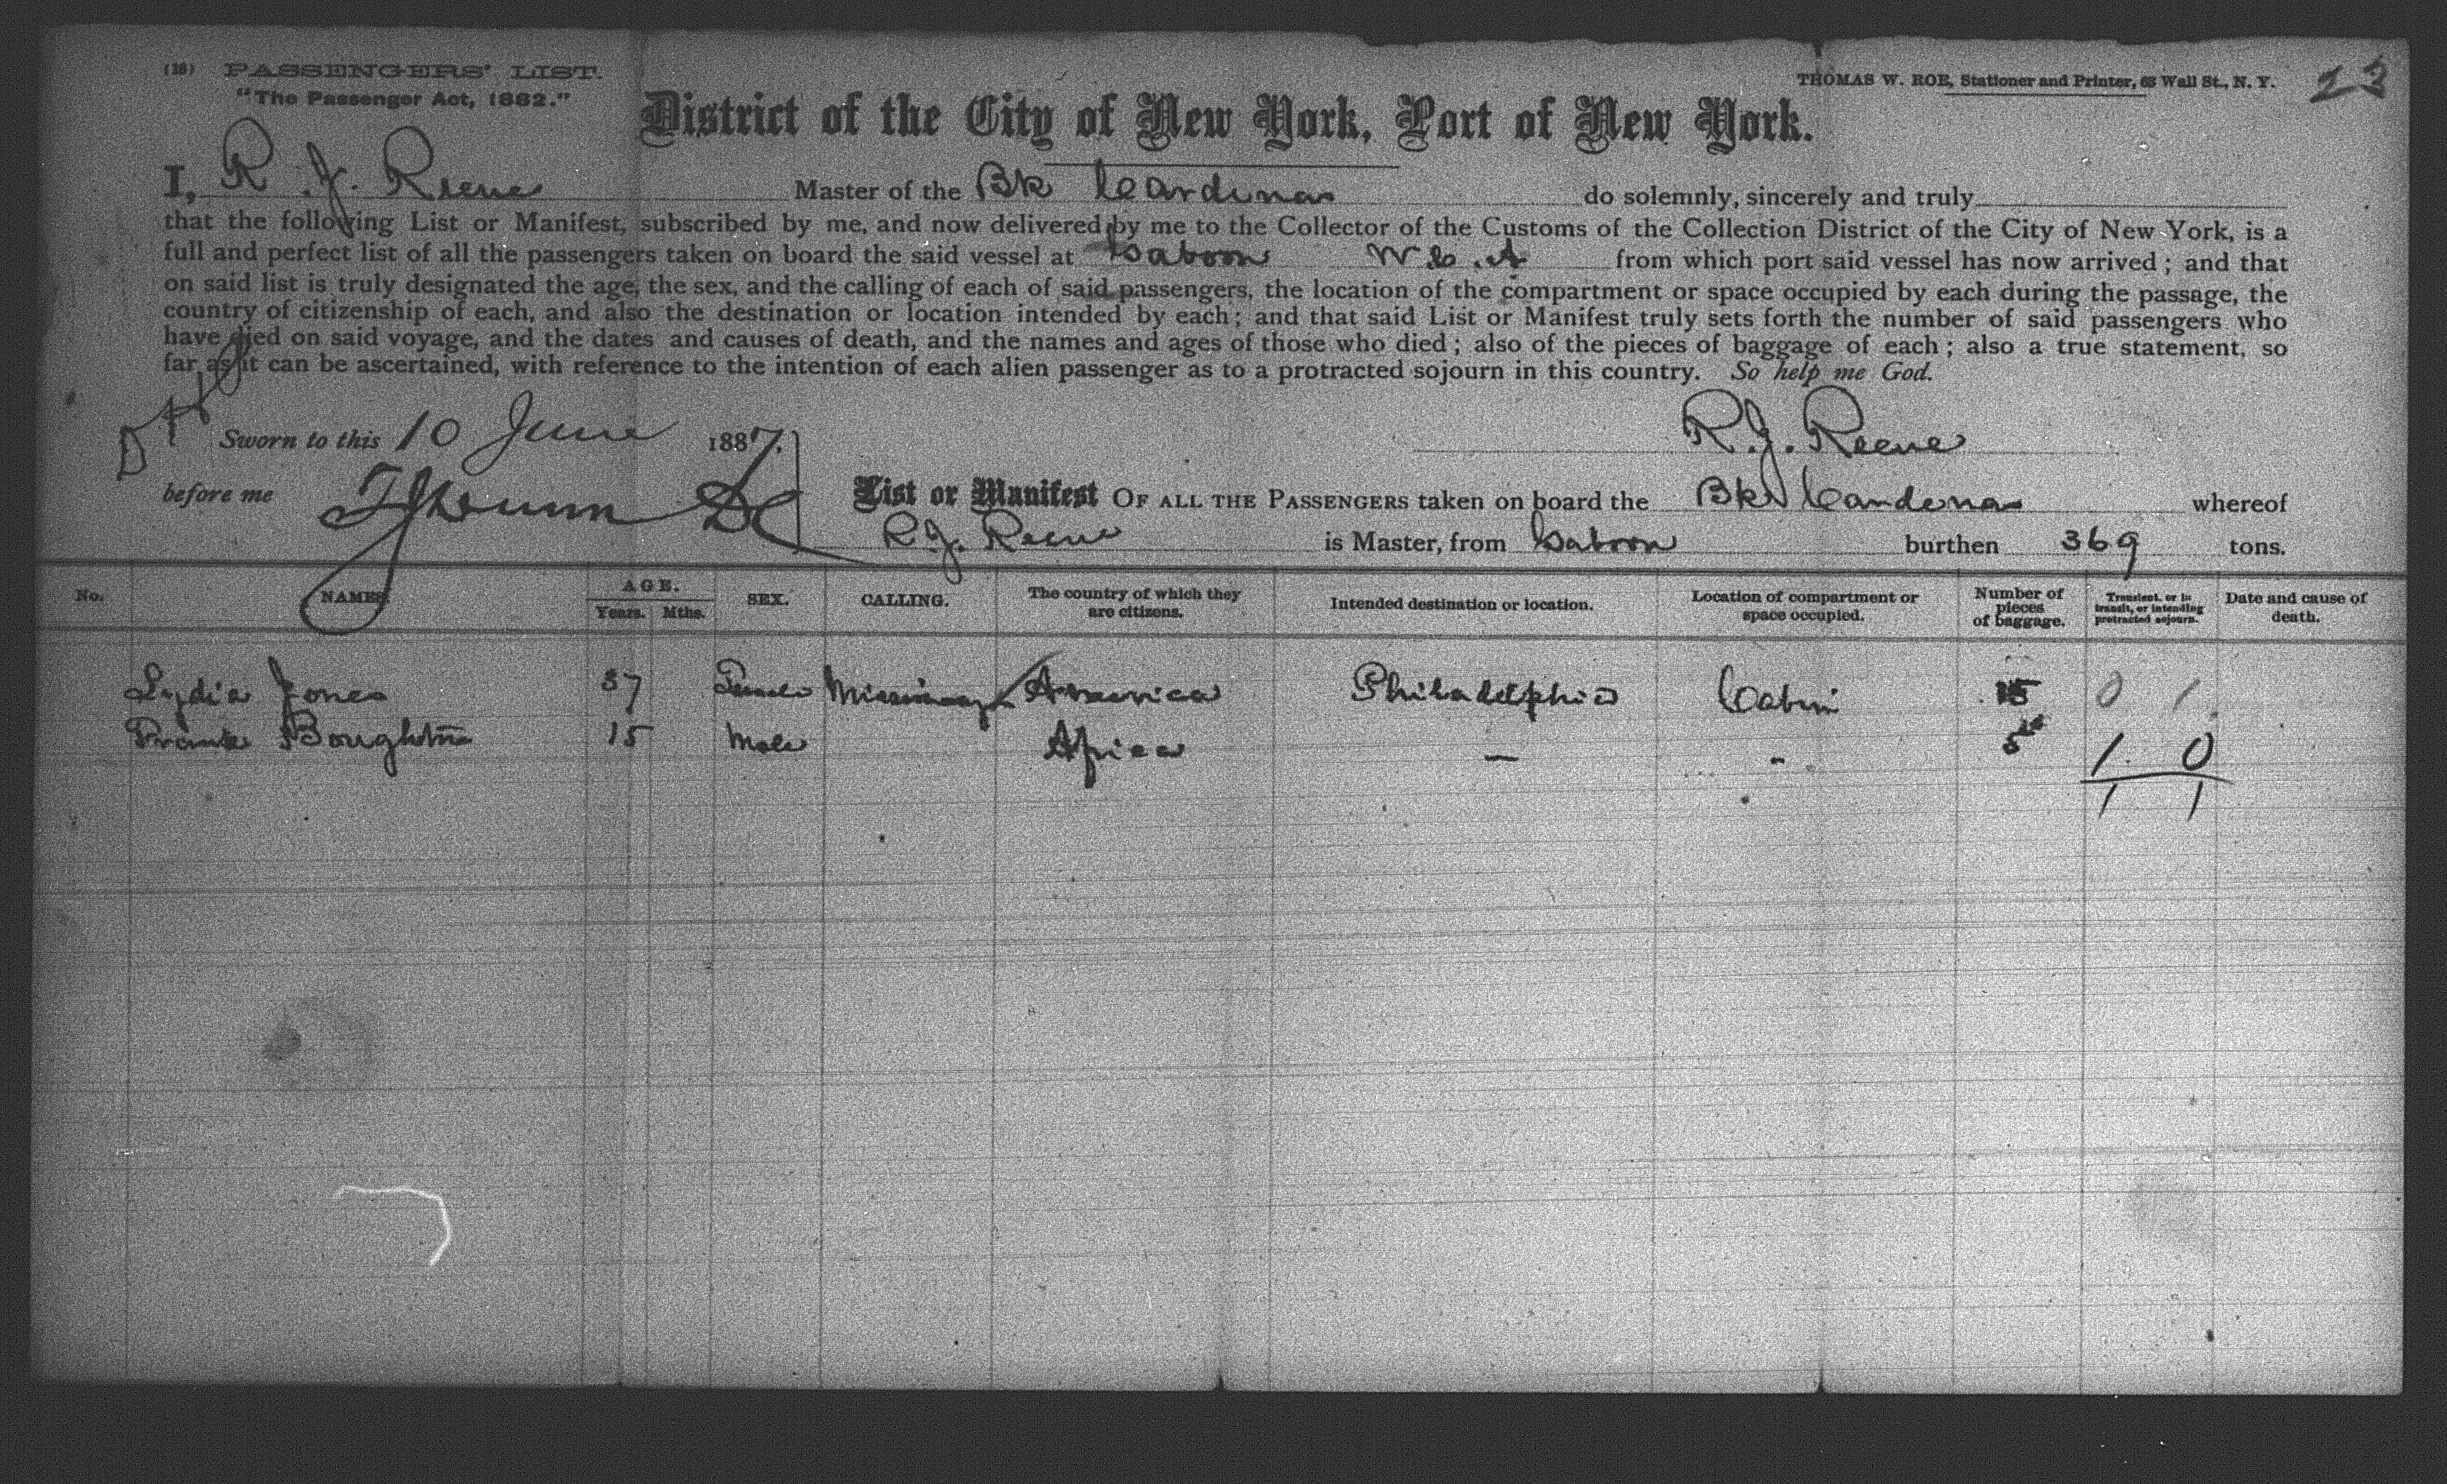 (18) PASSENGERS' LIST.
"The Passenger Act, 1882."
THOMAS W. ROE, Stationer and Printer, 63 Wall St., N. Y.
23
District of the City of New York, Port of New York.
I, R. J. Reene Master of the Bk Cardenas do solemnly, sincerely and truly
that the following List or Manifest, subscribed by me, and now delivered by me to the Collector of the Customs of the Collection District of the City of New York, is a
full and perfect list of all the passengers taken on board the said vessel at Gaboon W. C. A from which port said vessel has now arrived; and that
on said list is truly designated the age, the sex, and the calling of each of said passengers, the location of the compartment or space occupied by each during the passage, the
country of citizenship of each, and also the destination or location intended by each; and that said List or Manifest truly sets forth the number of said passengers who
have died on said voyage, and the dates and causes of death, and the names and ages of those who died; also of the pieces of baggage of each; also a true statement, so
far as it can be ascertained, with reference to the intention of each alien passenger as to a protracted sojourn in this country. So help me God.
Sworn to this 10 June 1887.
R. J. Reene
before me
List or Manifest OF ALL THE PASSENGERS taken on board the Bk Cardenas whereof
R. J. Reene is Master, from Gaboon burthen 369 tons.
No. NAMES. AGE. Years. Mths. SEX. CALLING. The country of which they are citizens. Intended destination or location. Location of compartment or space occupied. Number of pieces of baggage. Transient, or in transit, or intending protracted sojourn. Date and cause of death.
Lydia Jones 37 Female Missionary America Philadelphia Cabin 15 0 1
Frank Boughton 15 Male Africa — - 5 1 0
1 1